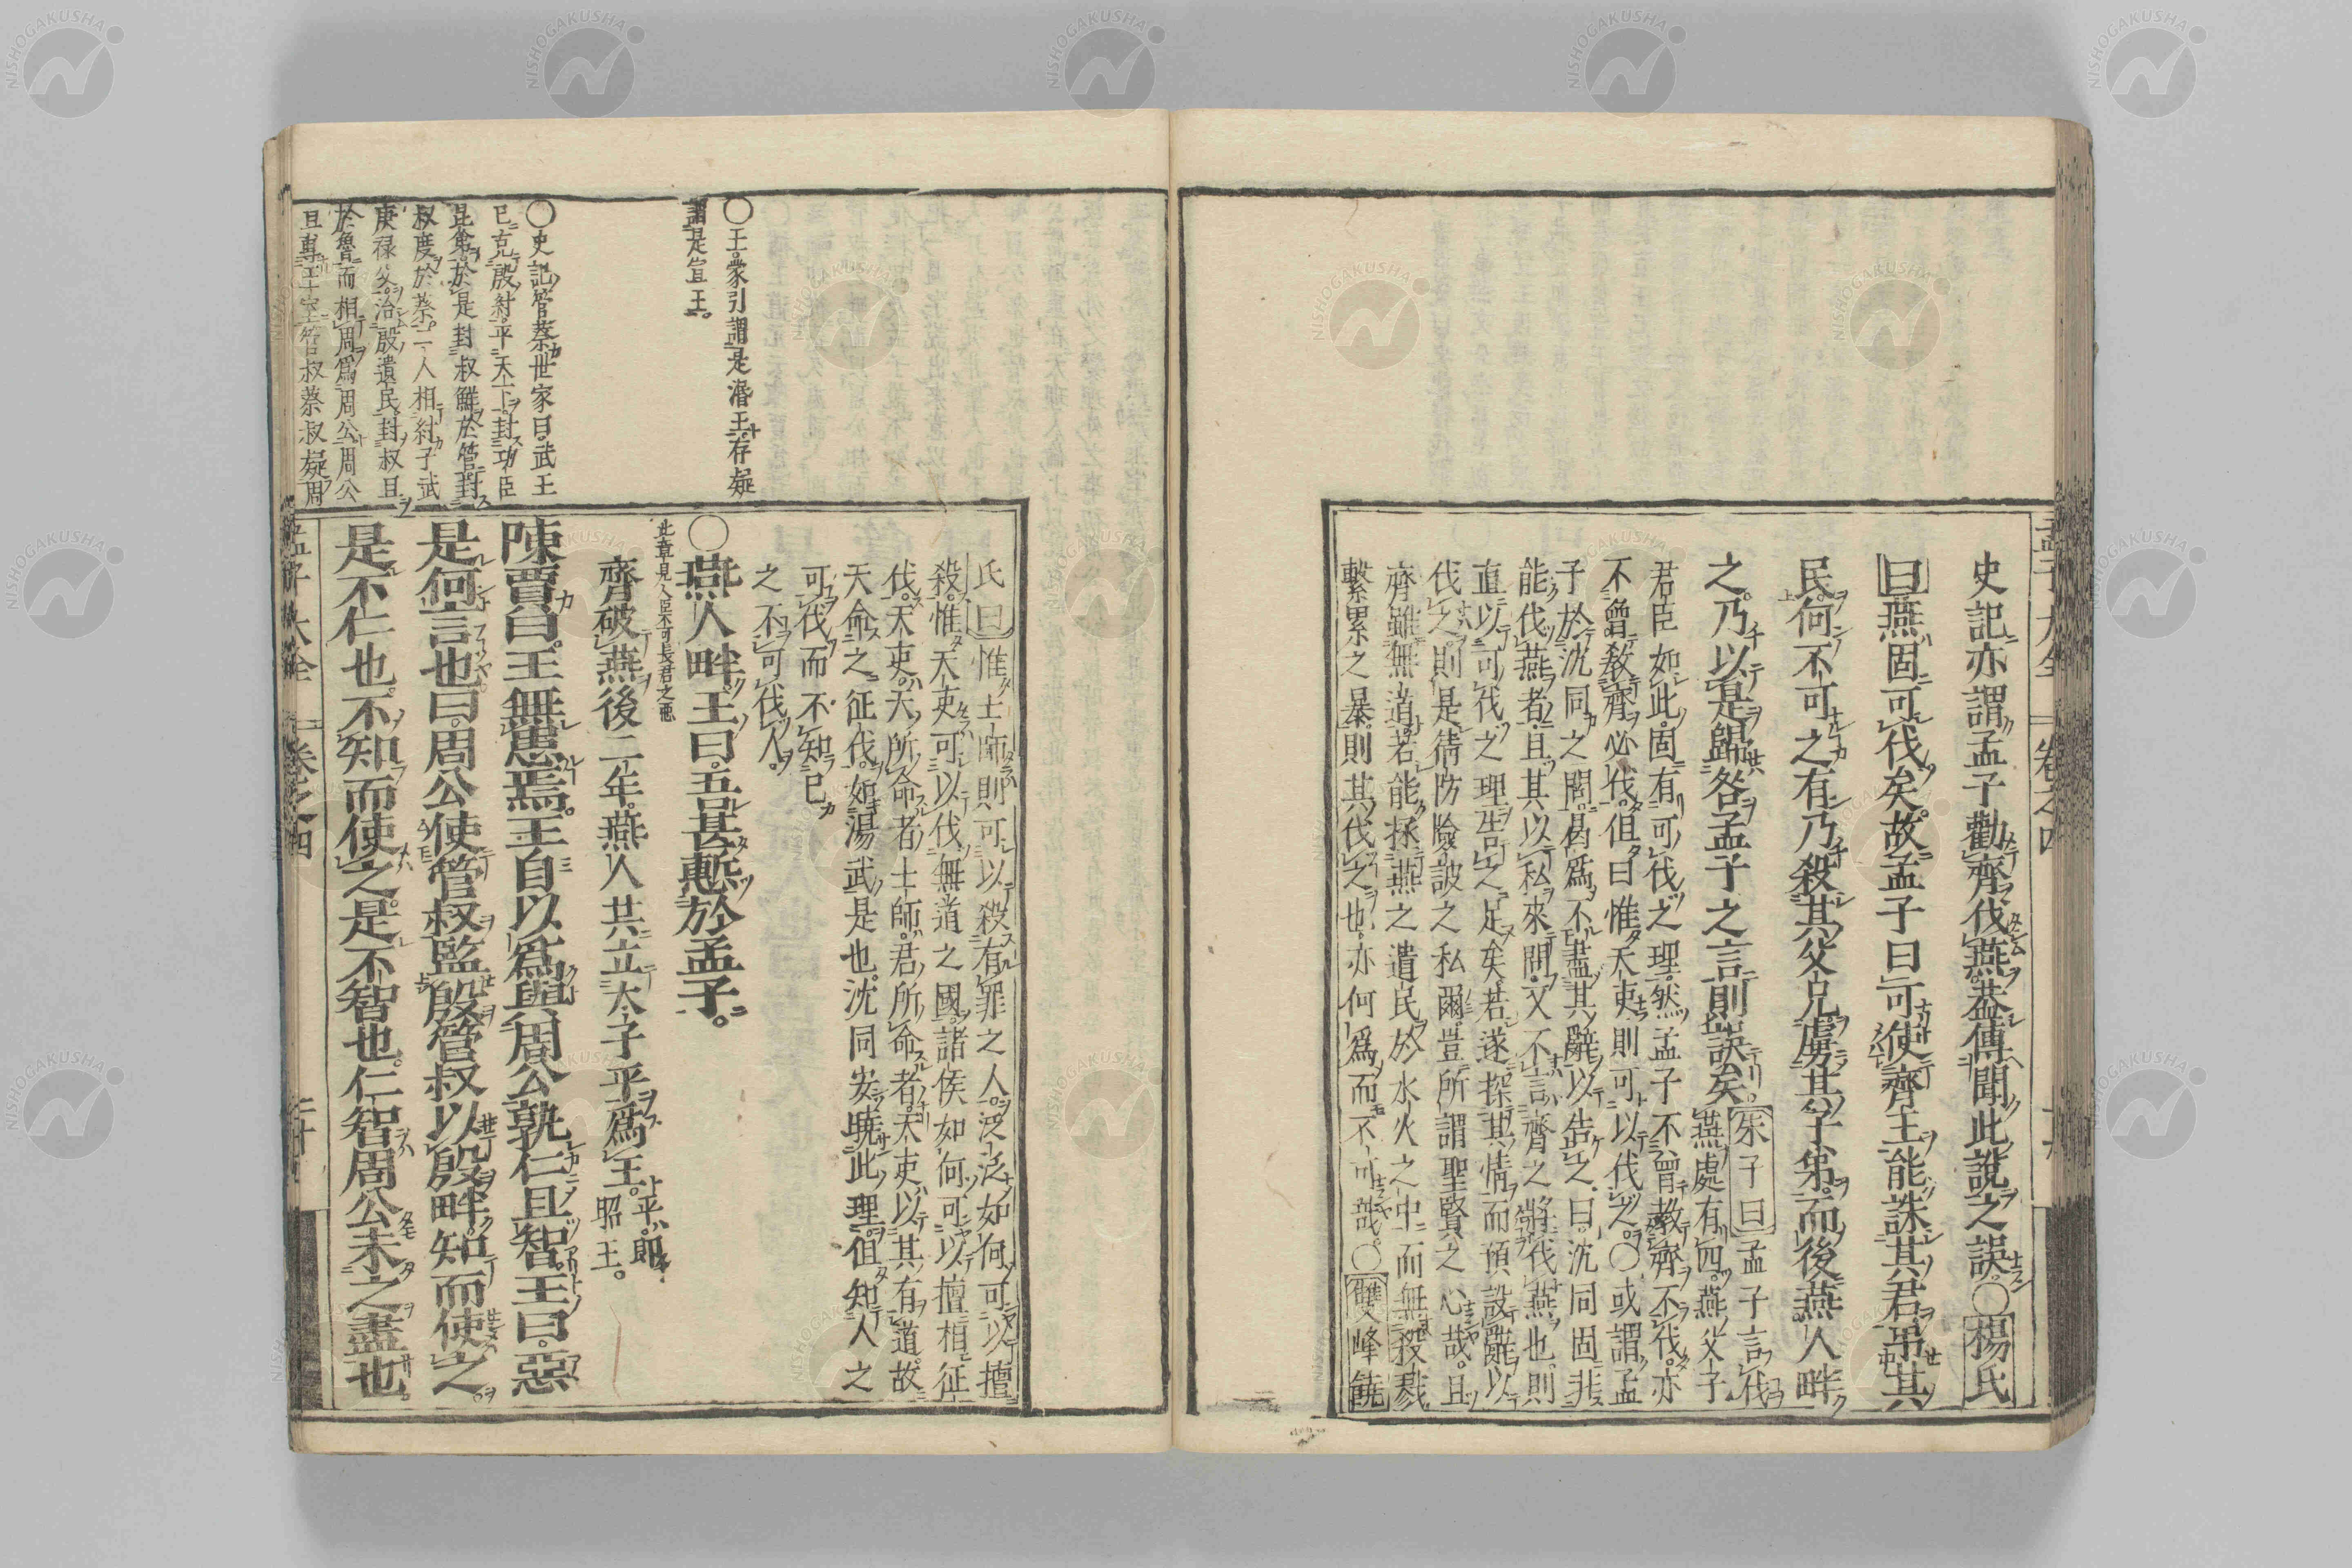 孟子大全 卷之四
史記亦謂孟子勸齊伐燕蓋傳聞此說之誤○楊氏
曰燕固可伐矣故孟子曰可使齊王能誅其君弔其
民何不可之有乃殺其父兄虜其子弟而後燕人畔
之乃以是歸咎孟子之言則誤矣朱子曰孟子言伐
燕處有四燕父子
君臣如此固有可伐之理然孟子不曾教齊不伐亦
不曾教齊必伐但曰惟天吏則可以伐之○或謂孟
子於沈同之問曷爲不盡其辭以告之曰沈同固非
能伐燕者且其以私來問又不言齊之將伐燕也則
直以可伐之理告之足矣若遂探其情而預設辭以
伐之則是猜防險詖之私爾豈所謂聖賢之心哉且
齊雖無道若能拯燕之遺民於水火之中而無殺戮
繫累之暴則其伐之也亦何爲而不可哉○雙峰饒
氏曰惟士師則可以殺有罪之人泛泛如何可以擅
殺惟天吏可以伐無道之國諸侯如何可以擅相征
伐天吏天所命者士師君所命者天吏以其有道故
天命之征伐如湯武是也沈同安曉此理但知人之
可伐而不知已
之不可伐人
○燕人畔王曰吾甚慙於孟子
此章見人臣不可長君之惡
齊破燕後二年燕人共立太子平爲王平即
昭王
陳賈曰王無患焉王自以爲與周公孰仁且智王曰惡
是何言也曰周公使管叔監殷管叔以殷畔知而使之
是不仁也不知而使之是不智也仁智周公未之盡也
○王蒙引謂是湣王存疑
謂是宣王
○史記管蔡世家曰武王
已克殷紂平天下封功臣
昆弟於是封叔鮮於管封
叔度於蔡二人相紂子武
庚祿父治殷遺民封叔旦
於魯而相周爲周公周公
旦專王室管叔蔡叔疑周
孟子大全 卷之四 二十